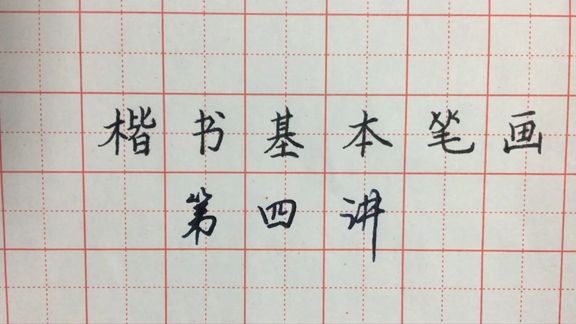 楷书基本笔画
第四讲